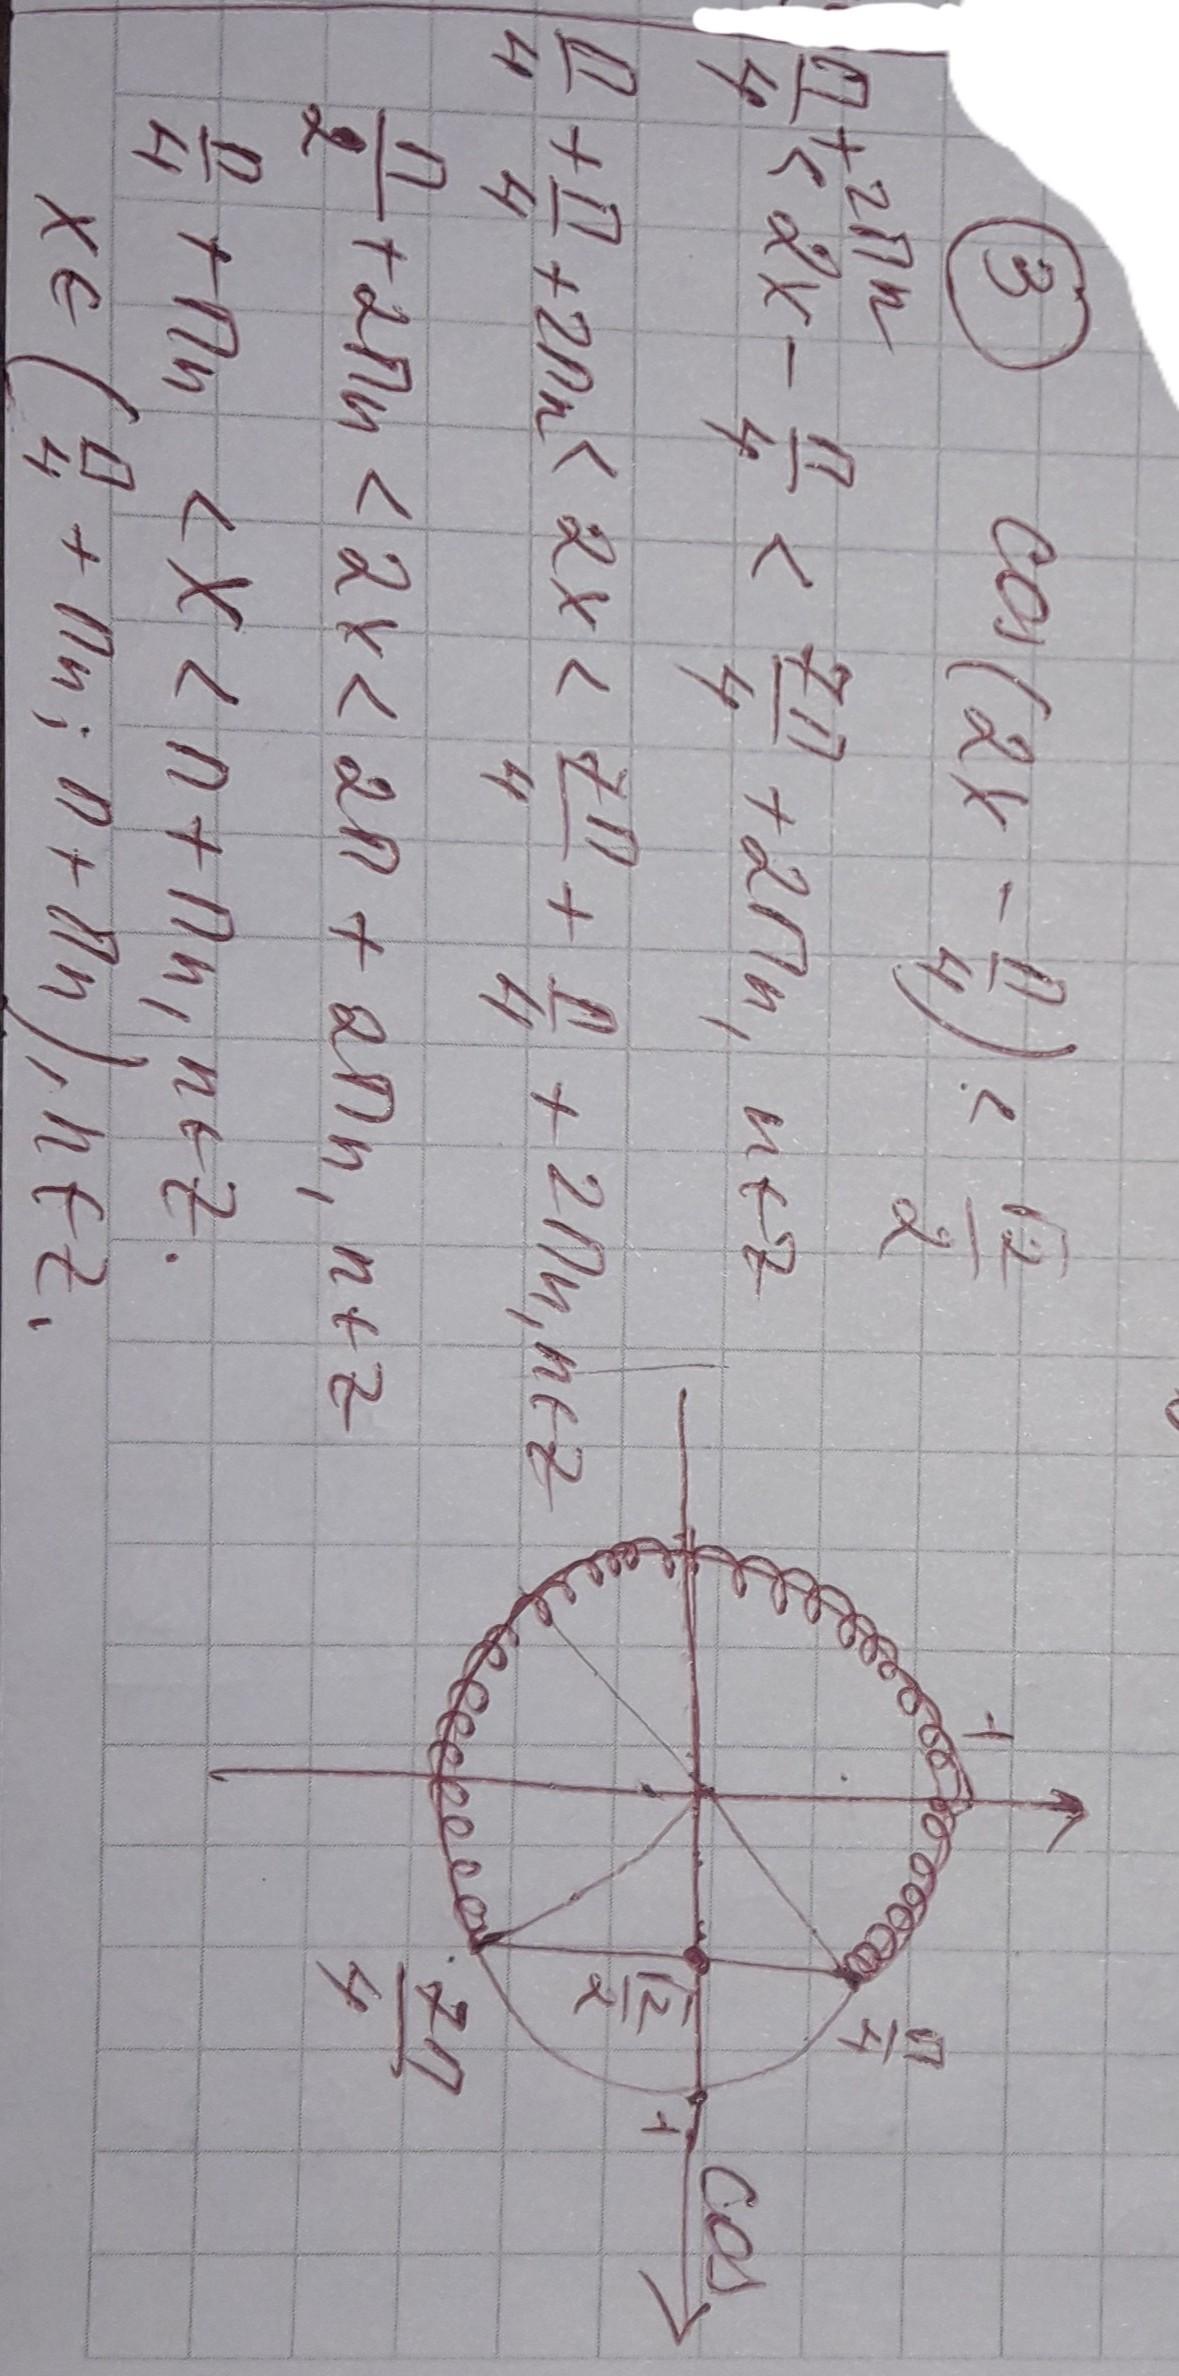 ③ cos(2x - π/4) < √2/2
π/4 + 2πn < 2x - π/4 < 7π/4 + 2πn, n∈Z
π/4 + π/4 + 2πn < 2x < 7π/4 + π/4 + 2πn, n∈Z
π/2 + 2πn < 2x < 2π + 2πn, n∈Z
π/4 + πn < x < π + πn, n∈Z.
x∈(π/4 + πn; π + πn), n∈Z.
1
π/4
√2/2
1
cos
7π/4